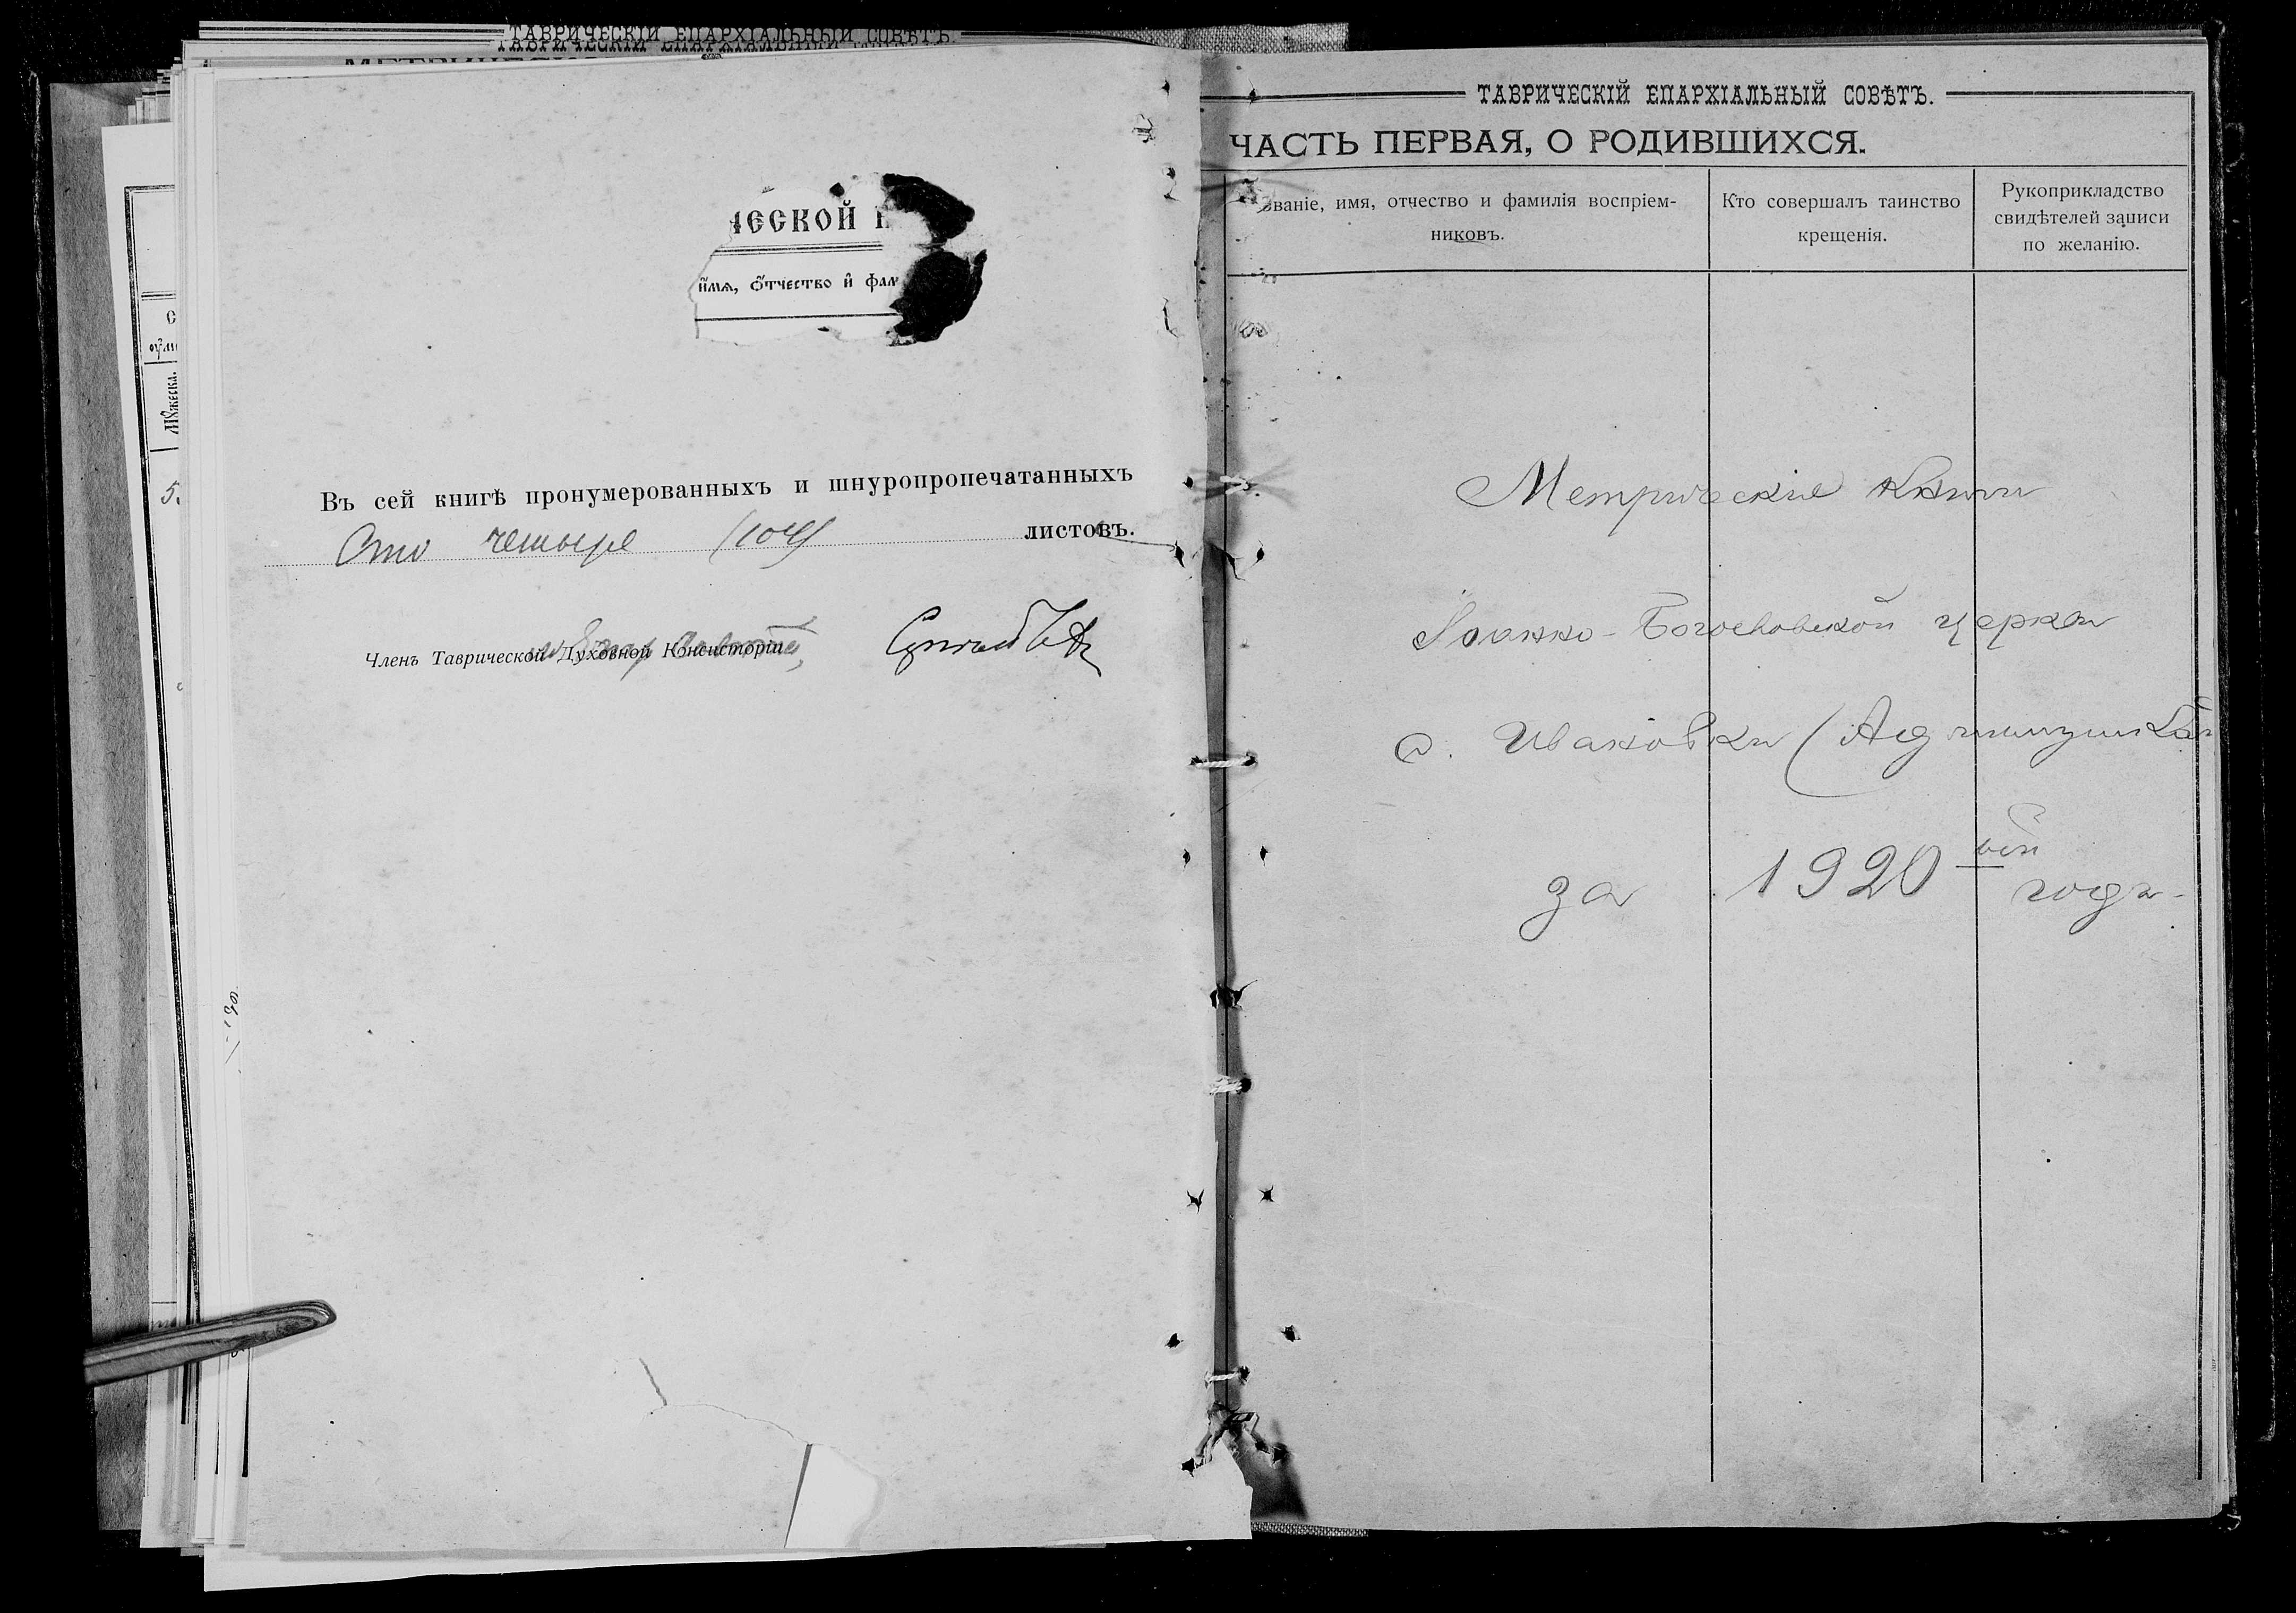 ТАВРИЧЕСКІЙ ЕПАРХІАЛЬНЫЙ СОВѢТЪ.
ЧЕСКОЙ К
имѧ, ѿчество и фам
Въ сей книгѣ пронумерованныхъ и шнуропропечатанныхъ
Сто четыре (104) листовъ.
Членъ Таврической Духовной Консисторіи
ТАВРИЧЕСКІЙ ЕПАРХІАЛЬНЫЙ СОВѢТЪ.
ЧАСТЬ ПЕРВАЯ, О РОДИВШИХСЯ.
Званіе, имя, отчество и фамилія воспріем-
никовъ.
Кто совершалъ таинство
крещенія.
Рукоприкладство
свидѣтелей записи
по желанію.
Метрическіе книги
Іоанно-Богословской церкви
с. Ивановки
за 1920 ый годъ.